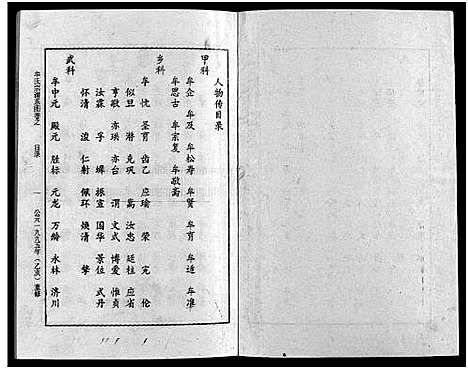 人物传目录
甲科
牟企 牟及 牟松寿 牟贤 牟育 牟适 牟准
牟思古 牟宗复 牟敬斋
乡科
牟忱 圣育 齿乙 应瑜 荣 完 伦
似旦 潜 克巩 嵩 汝忠 廷柱 应省
亨敬 亦珙 亦台 渭 文式 博爱 惟贞
汝霖 孚 埤 振宣 国华 景位 式丹
怀清 浚 仁射 佩环 焕清 擎
武科
牟中元 殿元 胜标 元龙 万龄 水林 济川
牟氏宗谱系图卷之 目录 一 公元一九九五年(乙亥)重修